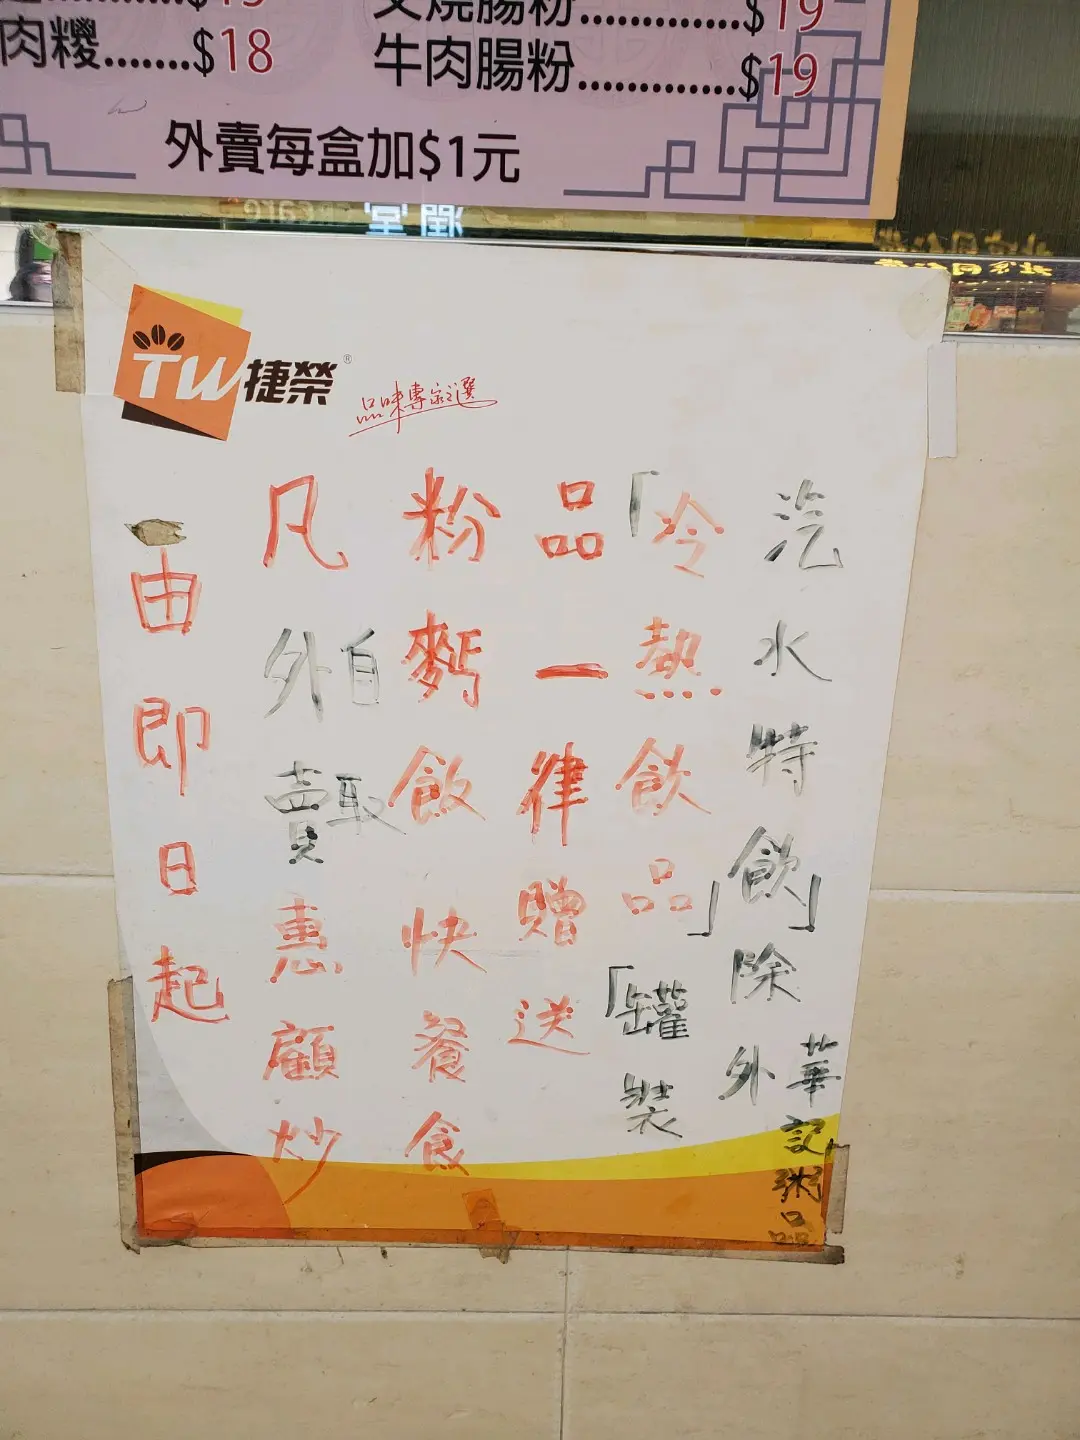 叉燒腸粉.............$19
肉糭.......$18
牛肉腸粉.............$19
外賣每盒加$1元
TW捷榮®
品味專家之選
由即日起
凡外賣自取惠顧炒
粉麪飯快餐食
品一律贈送
「冷熱飲品」「罐裝
汽水特飲」除外
華記粥品